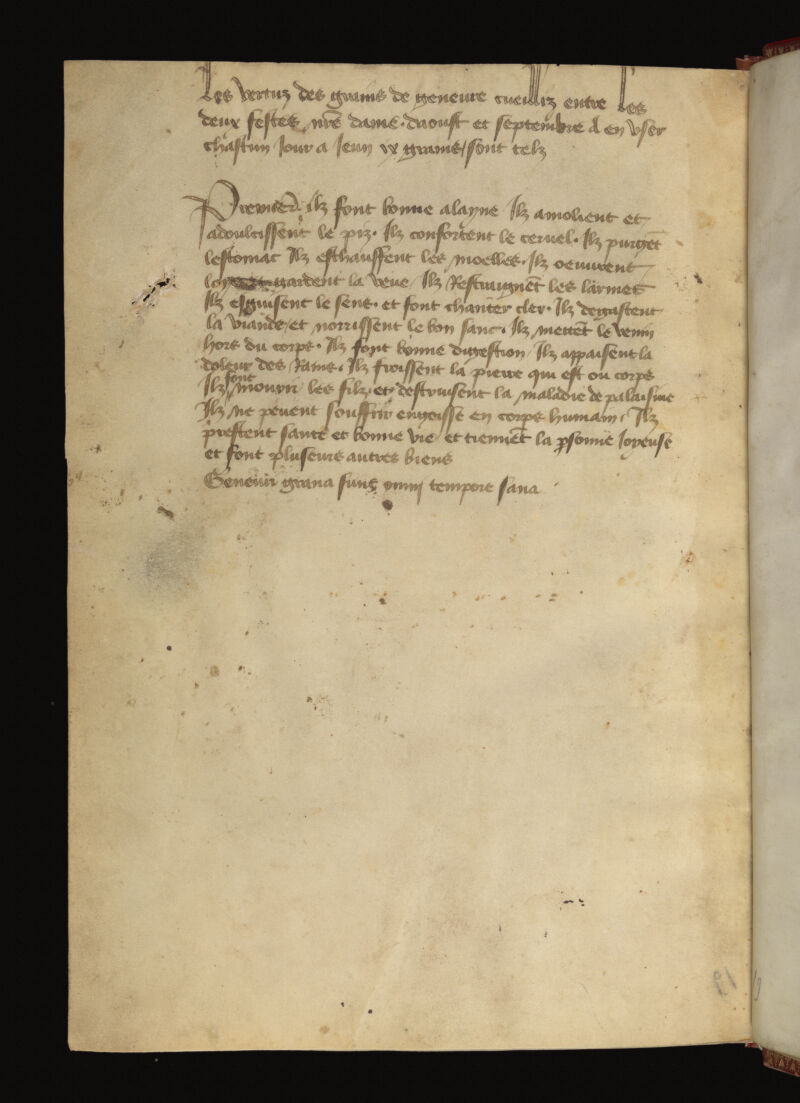 Les vertuz des grains de genevre cueilliz entre les
deux festes nr̃e dame daoust et septembre A en vser
chascun Jour a Jeun xx grains sont telz
Premierˀ. ilz font bonne alayne Ilz amolient et
adoulcissent le piz. Ilz confortent le cervel. Ilz purgẽt
lestomac Ilz eschauffent les moelles. Ilz oeuvrent
gardent la veue Ilz Restraignẽt les larmes
Ilz esguisent le sens. et font chanter cler. Ilz degastent
la viande et norrissent le bon sanc. Ilz mettẽt le venin
hors du corps. Ilz font bonne digestion Ilz appaisent la
doleur des Rains. Ilz froissent la pierre qui est ou corps
Ilz font mourir les filz et destruisent la maladie de palaisine
Ilz ne pevent souffrir engoisse en corps humain. Ilz
prestent sante et bonne vie et tiennẽt la ꝑsonne Joyeuse
et font pluseurs autres biens
Geneuri grana sunt omni tempore sana
19